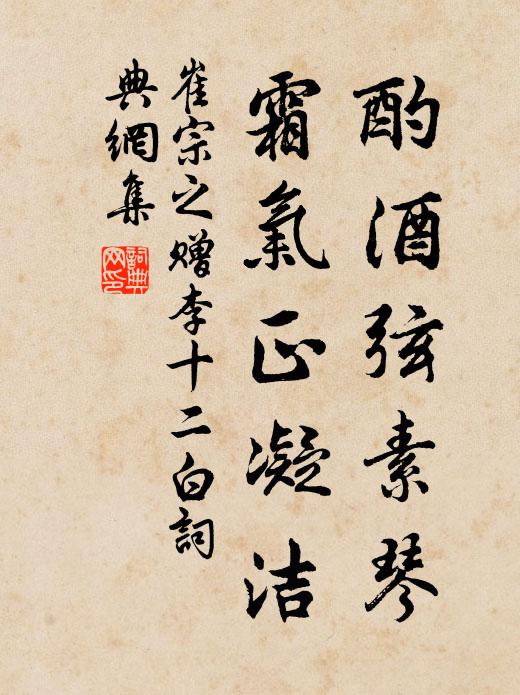 酌酒弦素琴
霜氣正凝洁
崔宗之贈李十二白詞
典網集
詞典
网印